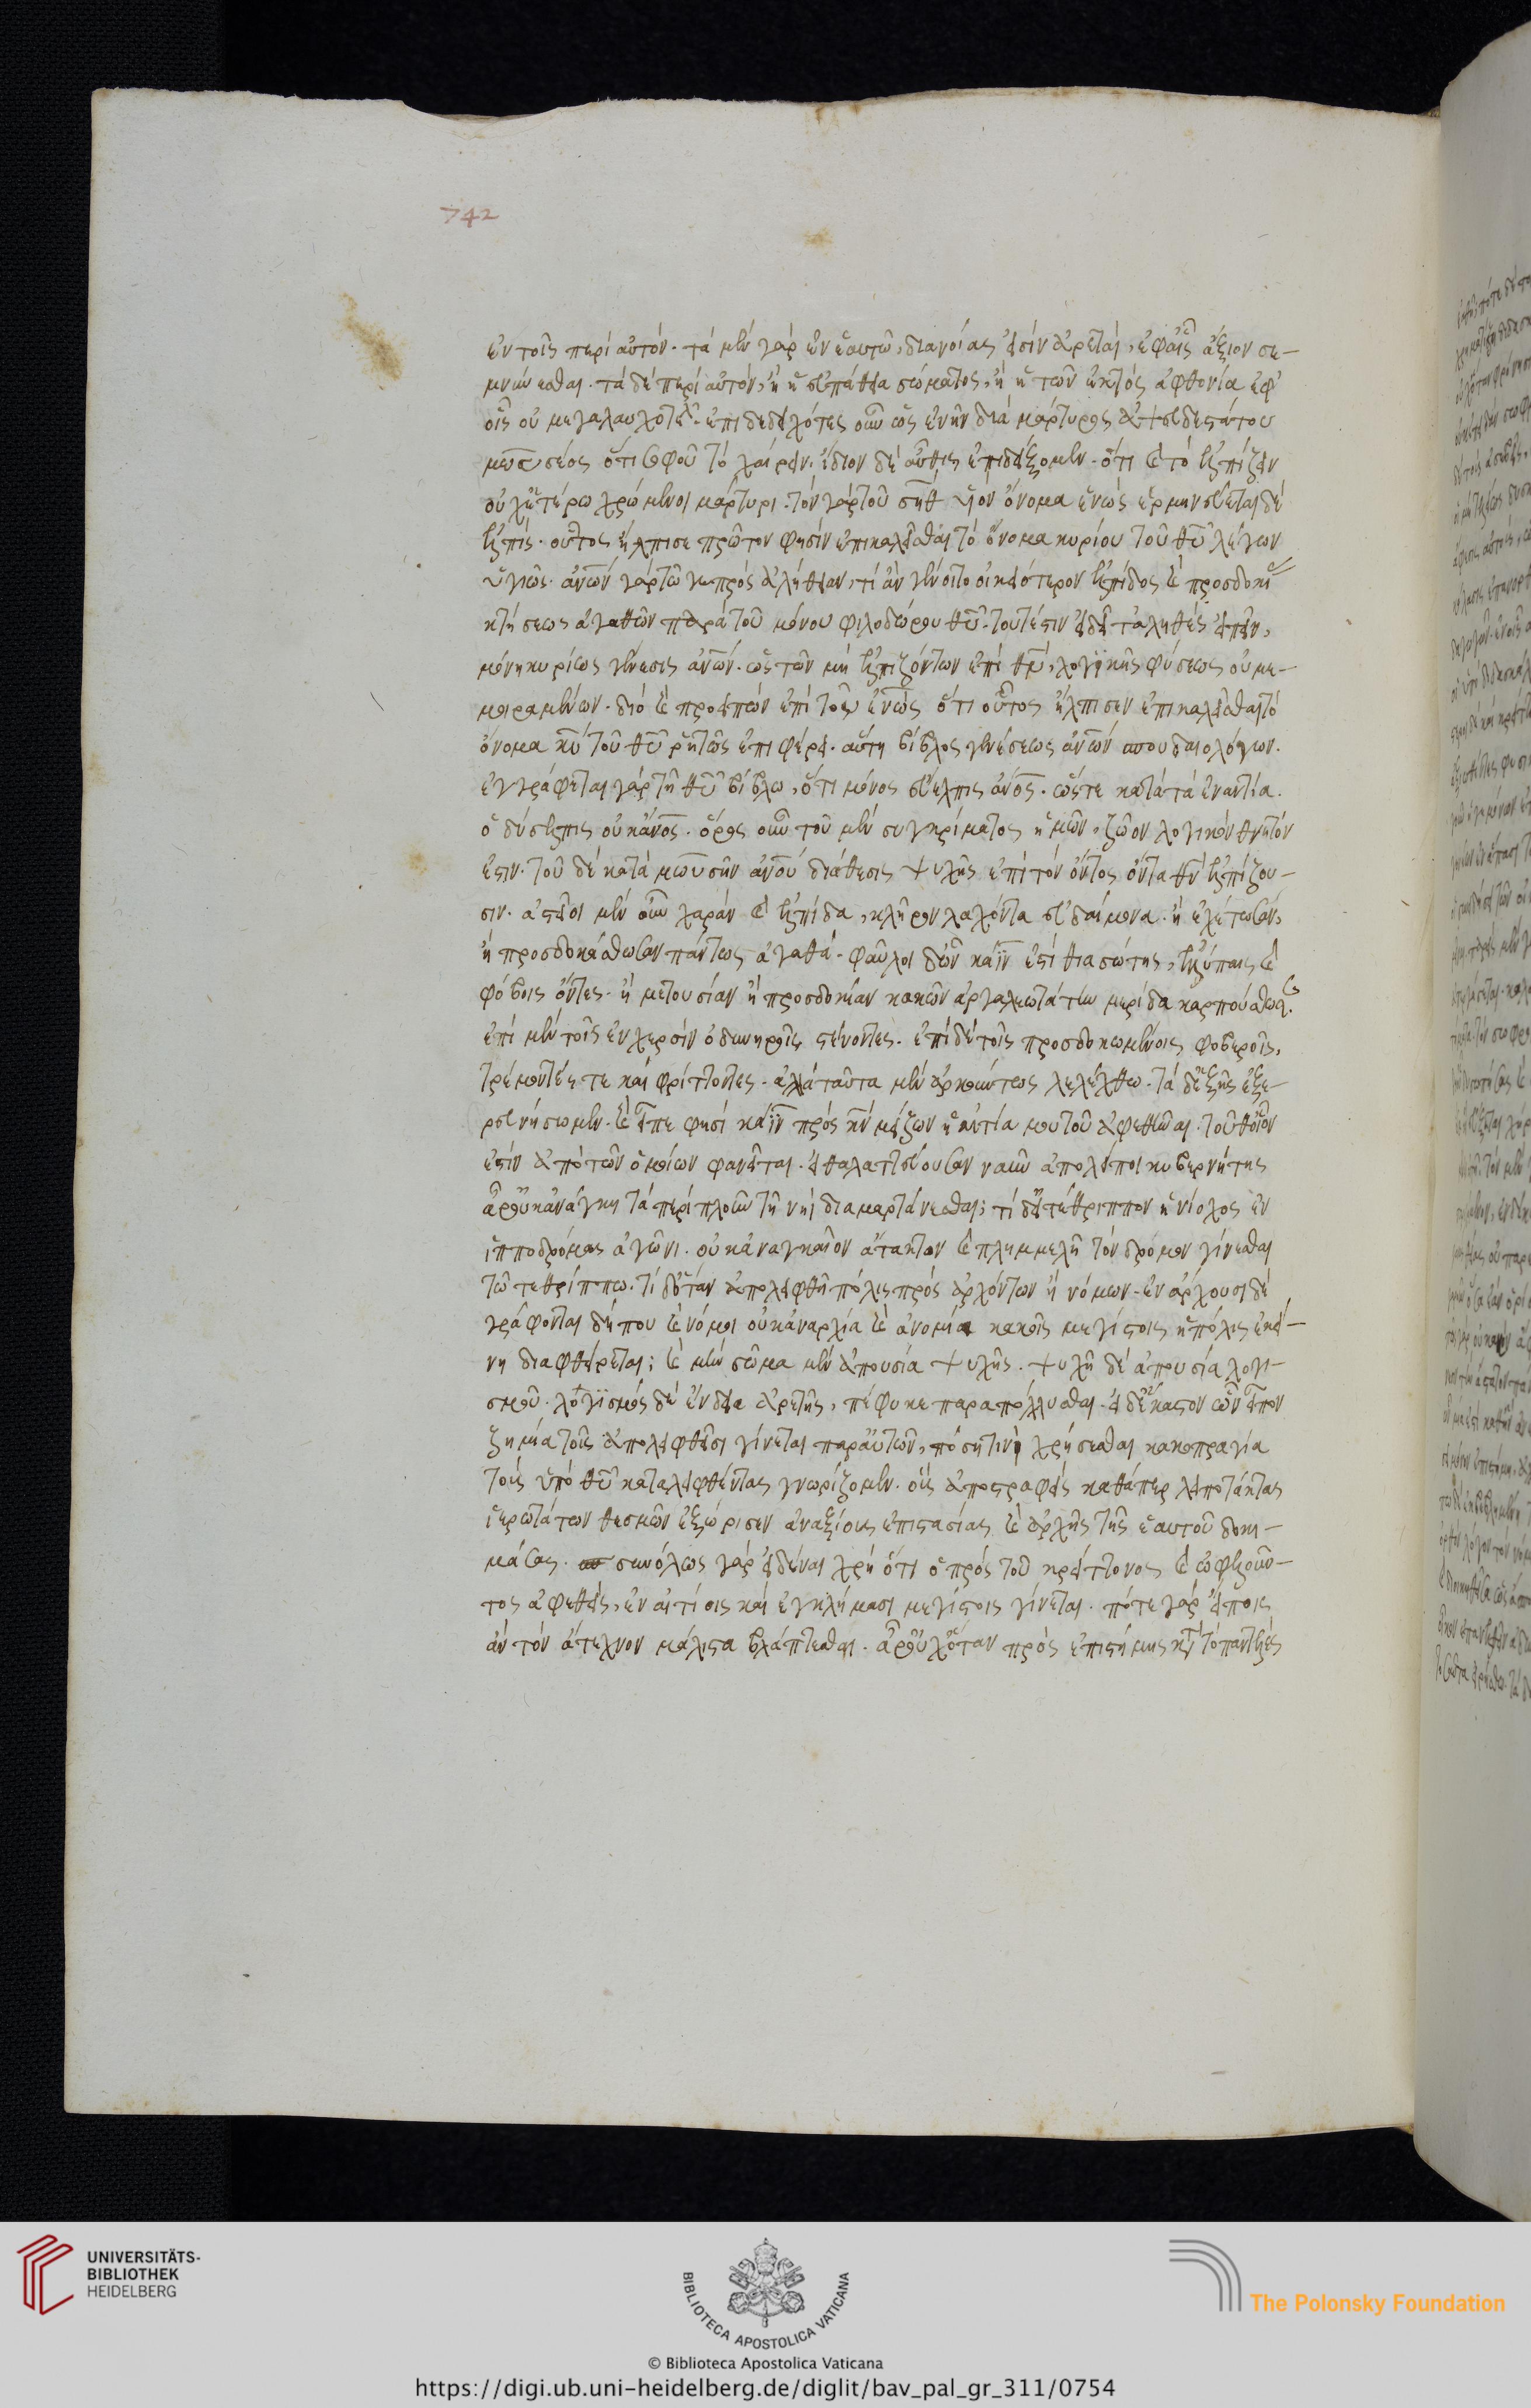 742
ἐν τοῖς περὶ αὐτόν. τὰ μὲν γὰρ ἐν ἑαυτῶ, διανοίας εἰσὶν ἀρεταὶ, ἐφ' αἷς ἄξιον σε-
μνύνεσθαι. τὰ δὲ περὶ αὐτὸν, ἢ ἡ εὐπάθεια σώματος, ἢ ἡ τῶν ἐκτὸς ἀφθονία ἐφ'
οἷς οὐ μεγαλαυχητέον. ἐπιδεδειχότες οὖν ὡς ἐνῆν διὰ μάρτυρος ἀψευδεστάτου
μωυσέος ὅτι σοφοῦ τὸ χαίρειν. ἴδιον δὲ αὖθις ἐπιδείξομεν. ὅτι καὶ τὸ ἐλπίζειν
οὐχ ἑτέρω χρώμενοι μάρτυρι. τὸν γὰρ τοῦ σὴθ υἱὸν ὄνομα ἐνὼς ἑρμηνεύεται δὲ
ἐλπίς. οὗτος ἤλπισε πρῶτον φησὶν ἐπικαλεῖσθαι τὸ ὄνομα κυρίου τοῦ θυ λέγων
ὑγιῶς. ανων γὰρ τῶ γε πρὸς ἀλήθειαν, τί ἂν γένοιτο οἰκειότερον ἐλπίδος καὶ προσδοκί
κτήσεως ἀγαθῶν παρὰ τοῦ μόνου φιλοδώρου θυ. τοῦτέστιν εἰ δεῖ τἀληθὲς εἰπεῖν,
μόνη κυρίως γένεσις ανων. ὡς τῶν μὴ ἐλπιζόντων ἐπὶ θν, λογϊκῆς φύσεως οὐ με-
μοιραμένων. διὸ καὶ προειπὼν ἐπὶ τοῦ ἐνὼς ὅτι οὗτος ἤλπισεν ἐπικαλεῖσθαι τὸ
ὄνομα κυ τοῦ θυ ῥητῶς ἐπιφέρει. αὕτη βίβλος γενέσεως ανων σπουδαιολόγων.
ἐγγράφεται γὰρ τῆ θυ βίβλω, ὅτι μόνος εὔελπις ανος. ὥστε κατὰ τὰ ἐναντία.
ὁ δύσελπις οὐκ ανος. ὅρος οὖν τοῦ μὲν συγκρίματος ἡμῶν, ζῶον λογικὸν θνητόν
ἐστιν. τοῦ δὲ κατὰ μωυσῆν ανου διάθεσις ψυχῆς ἐπὶ τὸν ὄντος ὄντα θν ἐλπίζου-
σιν. ἀστεῖοι μὲν οὖν χαρὰν καὶ ἐλπίδα, κλῆρον λαχόντα εὐδαίμονα. ἢ ἐχέτωσαν,
ἢ προσδοκάσθωσαν πάντως ἀγαθά. φαῦλοι δ' ὧν κάϊν ἐστὶ θιασώτης, ἐν λύπαις καὶ
φόβοις ὄντες. ἢ μετουσίαν ἢ προσδοκίαν κακῶν ἀργαλεωτάτην μερίδα καρπούσθωσαν.
ἐπὶ μὲν τοῖς ἐν χερσὶν ὀδυνηροῖς στένοντες. ἐπὶ δὲ τοῖς προσδοκωμένοις φοβεροῖς,
τρέμοντές τε καὶ φρίττοντες. ἀλλὰ ταῦτα μὲν ἀρκούντως λελέχθω. τὰ δ' ἑξῆς ἐξε-
ρευνήσωμεν. καὶ εἶπε φησὶ κάϊν πρὸς κν μείζων ἡ αἰτία μου τοῦ ἀφεθῆναι. τοῦθ' οἷον
ἐστὶν ἀπὸ τῶν ὁμοίων φανεῖται. εἰ θαλαττεύουσαν ναῦν ἀπολείποι κυβερνήτης
ἆρ' οὐκ ἀνάγκη τὰ περὶ πλοῦν τῆ νηὶ διαμαρτάνεσθαι; τί δ' εἰ τέθριππον ἡνίοχος ἐν
ἱπποδρόμοις ἀγῶνι. οὐκ ἀναγκαῖον ἄτακτον καὶ πλημμελῆ τὸν δρόμον γίνεσθαι
τῶ τεθρίππω. τί δ' ὅταν ἀπολειφθῆ πόλις πρὸς ἀρχόντων ἢ νόμων. ἐν ἄρχουσι δὲ
γράφονται δήπου καὶ νόμοι οὐκ ἀναρχία καὶ ἀνομία κακοῖς μεγίστοις ἡ πόλις ἐκεί-
νη διαφθείρεται; καὶ μὴν σῶμα μὲν ἀπουσία ψυχῆς. ψυχὴ δὲ ἀπουσία λογι-
σμοῦ. λογϊσμὸς δὲ ἐνδεία ἀρετῆς, πέφυκε παραπόλλυσθαι. εἰ δ' ἕκαστον ὧν εἶπον
ζημία τοῖς ἀπολειφθεῖσι γίνεται παρ' αὐτῶν, πόση τινὶ χρήσεσθαι κακοπραγία
τοὺς ὑπὸ θυ καταλειφθέντας γνωρίζομεν. οὓς ἀποστραφεὶς καθάπερ λειποτάκτας
ἱερωτάτων θεσμῶν ἐξώρισεν ἀναξίους ἐπιστασίας καὶ ἀρχῆς τῆς ἑαυτοῦ δοκι-
μάσας. συνόλως γὰρ εἰδέναι χρὴ ὅτι ὁ πρὸς τοῦ κρείττονος καὶ ὠφελοῦν-
τος ἀφεθεὶς, ἐν αἰτίαις καὶ ἐγκλήμασι μεγίστοις γίνεται. πότε γὰρ εἴποις
ἂν τὸν ἄτεχνον μάλιστα βλάπτεσθαι. ἆρ' οὐχ' ὅταν πρὸς ἐπιστήμης κατὰ τὸ παντελὲς
UNIVERSITÄTS-
BIBLIOTHEK
HEIDELBERG
BIBLIOTECA APOSTOLICA VATICANA
The Polonsky Foundation
© Biblioteca Apostolica Vaticana
https://digi.ub.uni-heidelberg.de/diglit/bav_pal_gr_311/0754